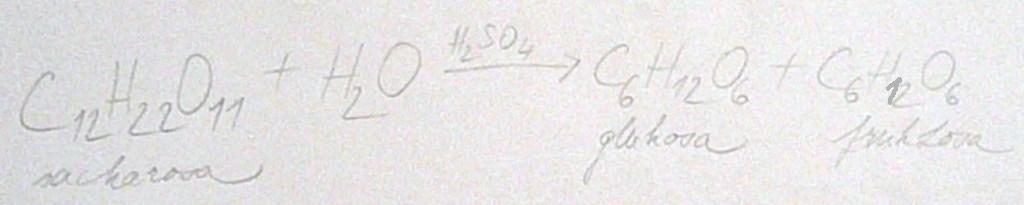 C₁₂H₂₂O₁₁ + H₂O H₂SO₄→ C₆H₁₂O₆ + C₆H₁₂O₆
sacharosa glukosa fruktosa